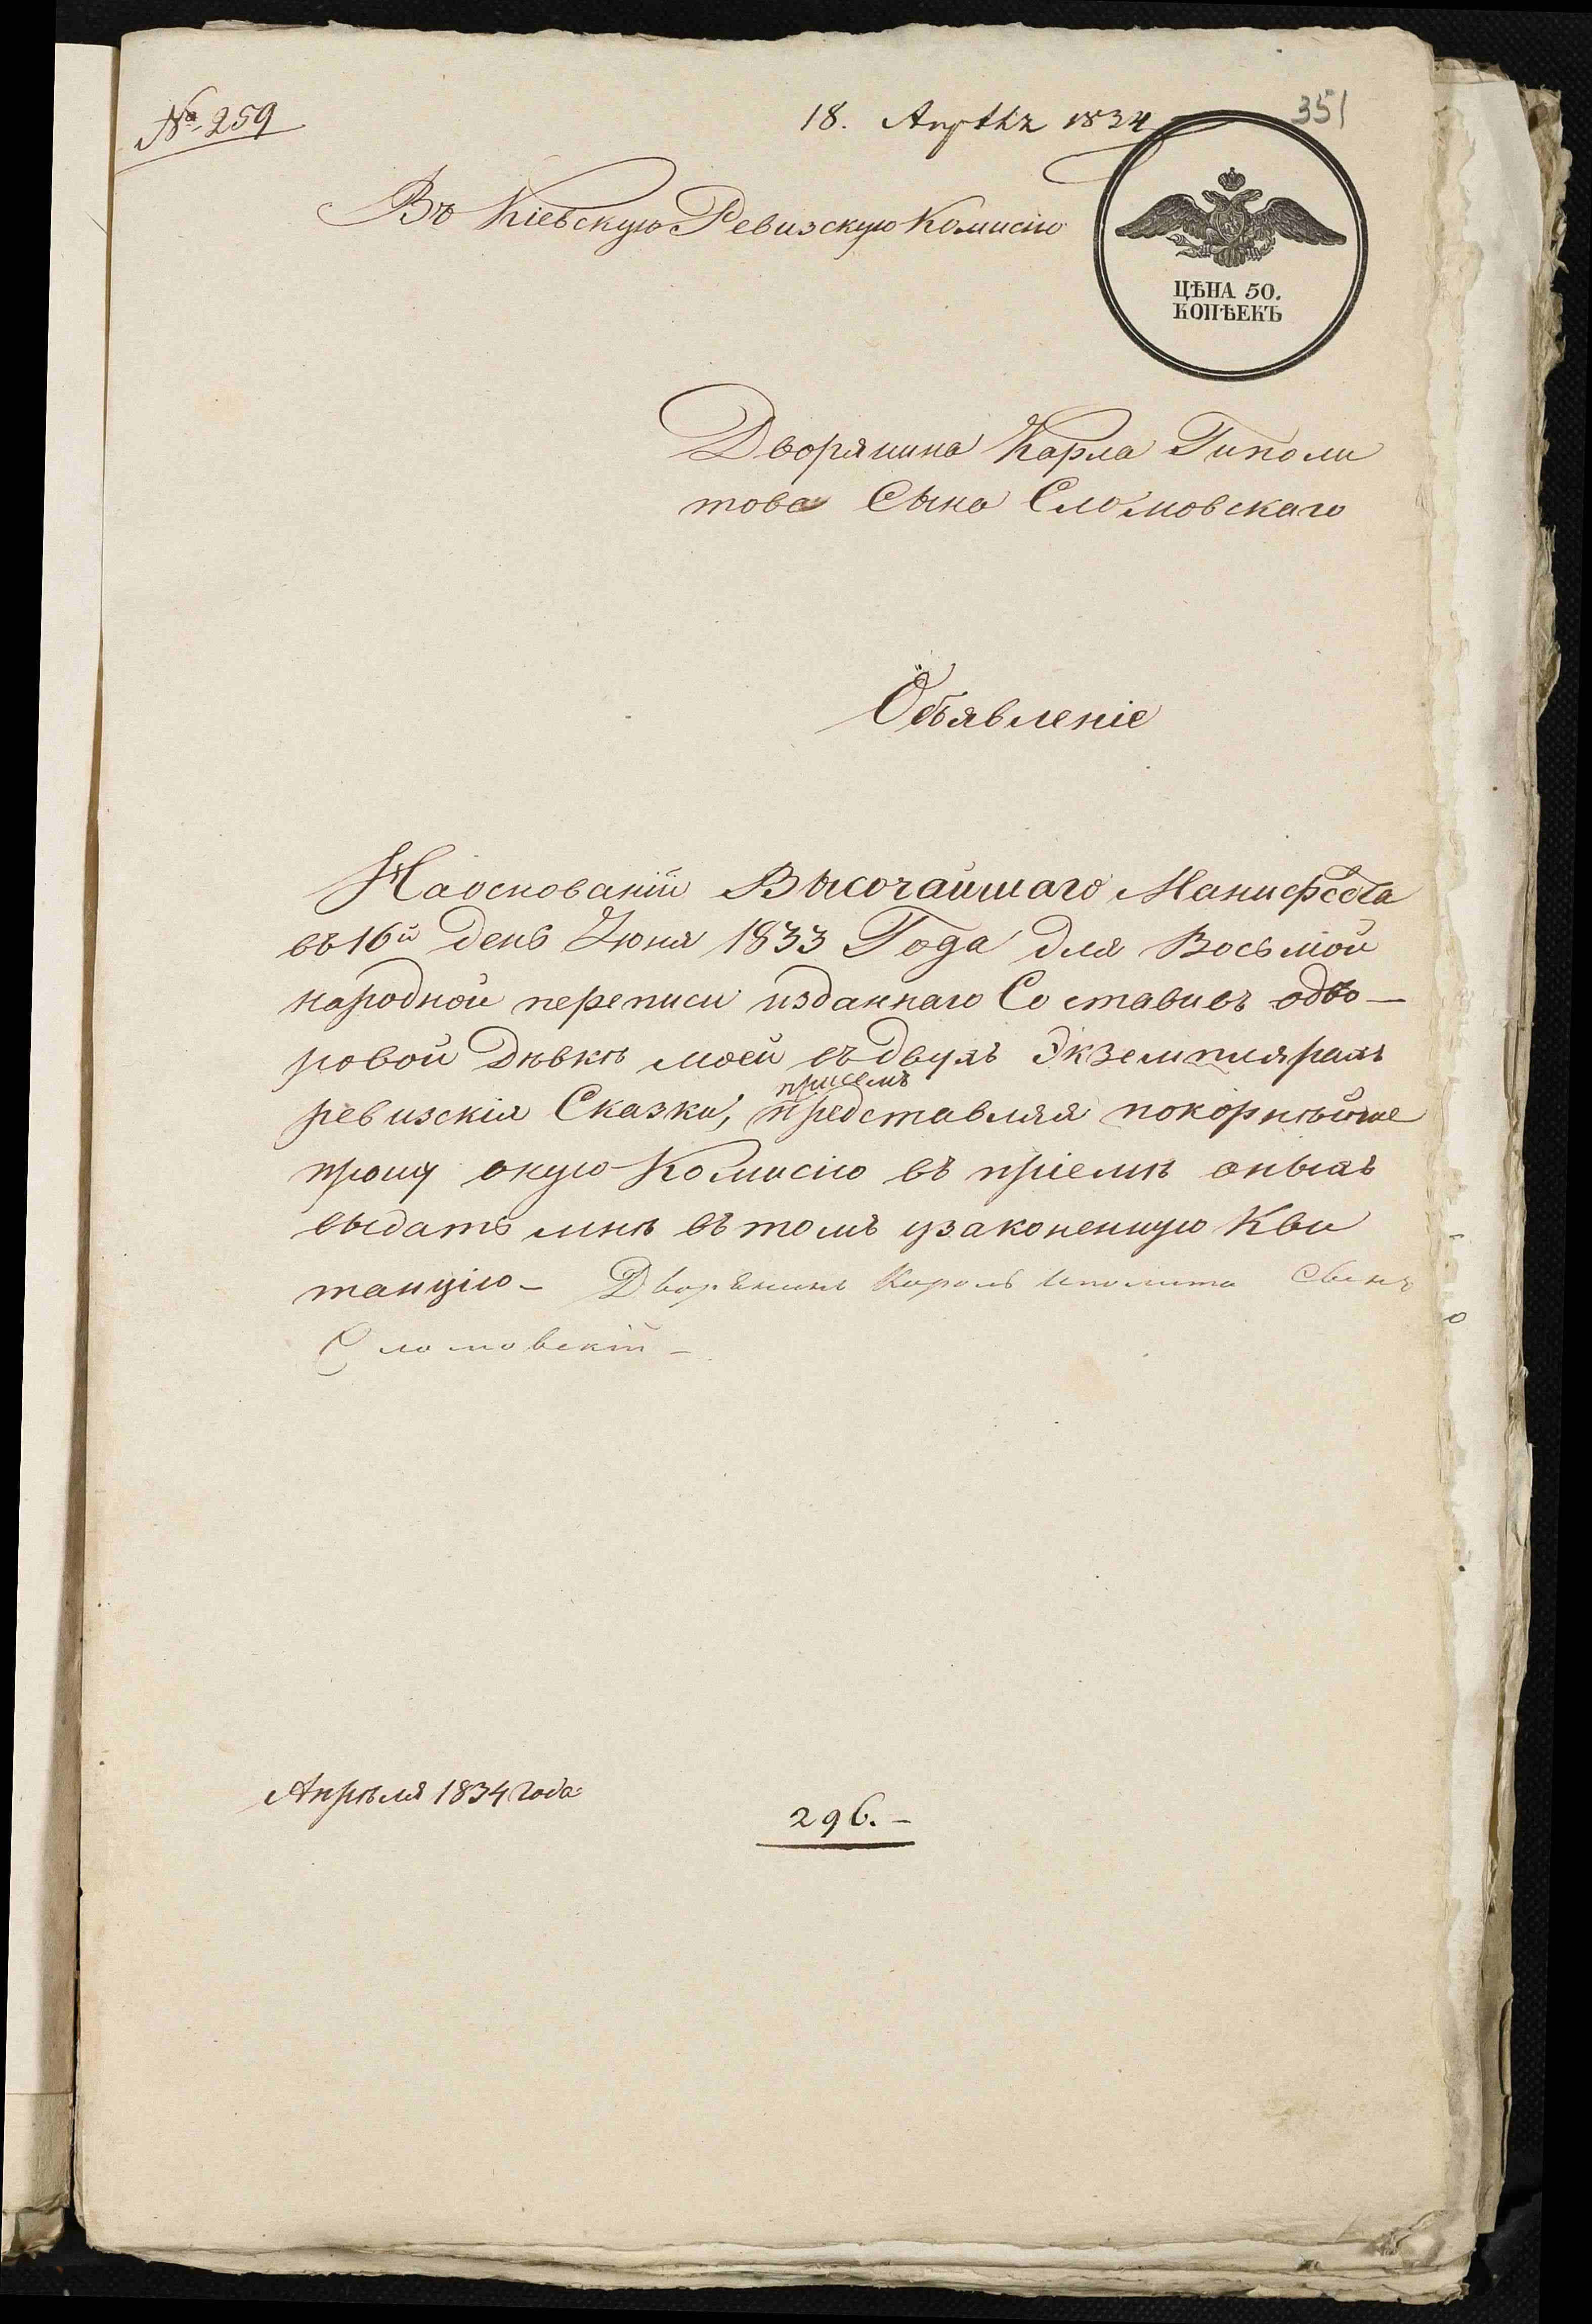 № 259
18. Апрѣля 1834
351
Въ Кіевскую Ревизскую Комисію
ЦѢНА 50.
КОПѢЕКЪ
Дворянина Карла Гиполи
това Сына Сломовскаго
Объявленіе
На основаніи Высочайшаго Манифеста
въ 16й день Іюня 1833 Года для Восьмой
народной переписи изданнаго Составивъ одво—
ровой Дѣвкѣ моей въ двухъ Экземплярахъ
присемъ
ревизскія Сказки, представляя покорнѣйше
прошу оную Комисію въ пріемѣ оныхъ
выдать мнѣ въ томъ узаконенную Кви
танцію – Дворянинъ Кароль Иполита Сынъ
Сломовскій –
Апрѣля 1834 года
296. –